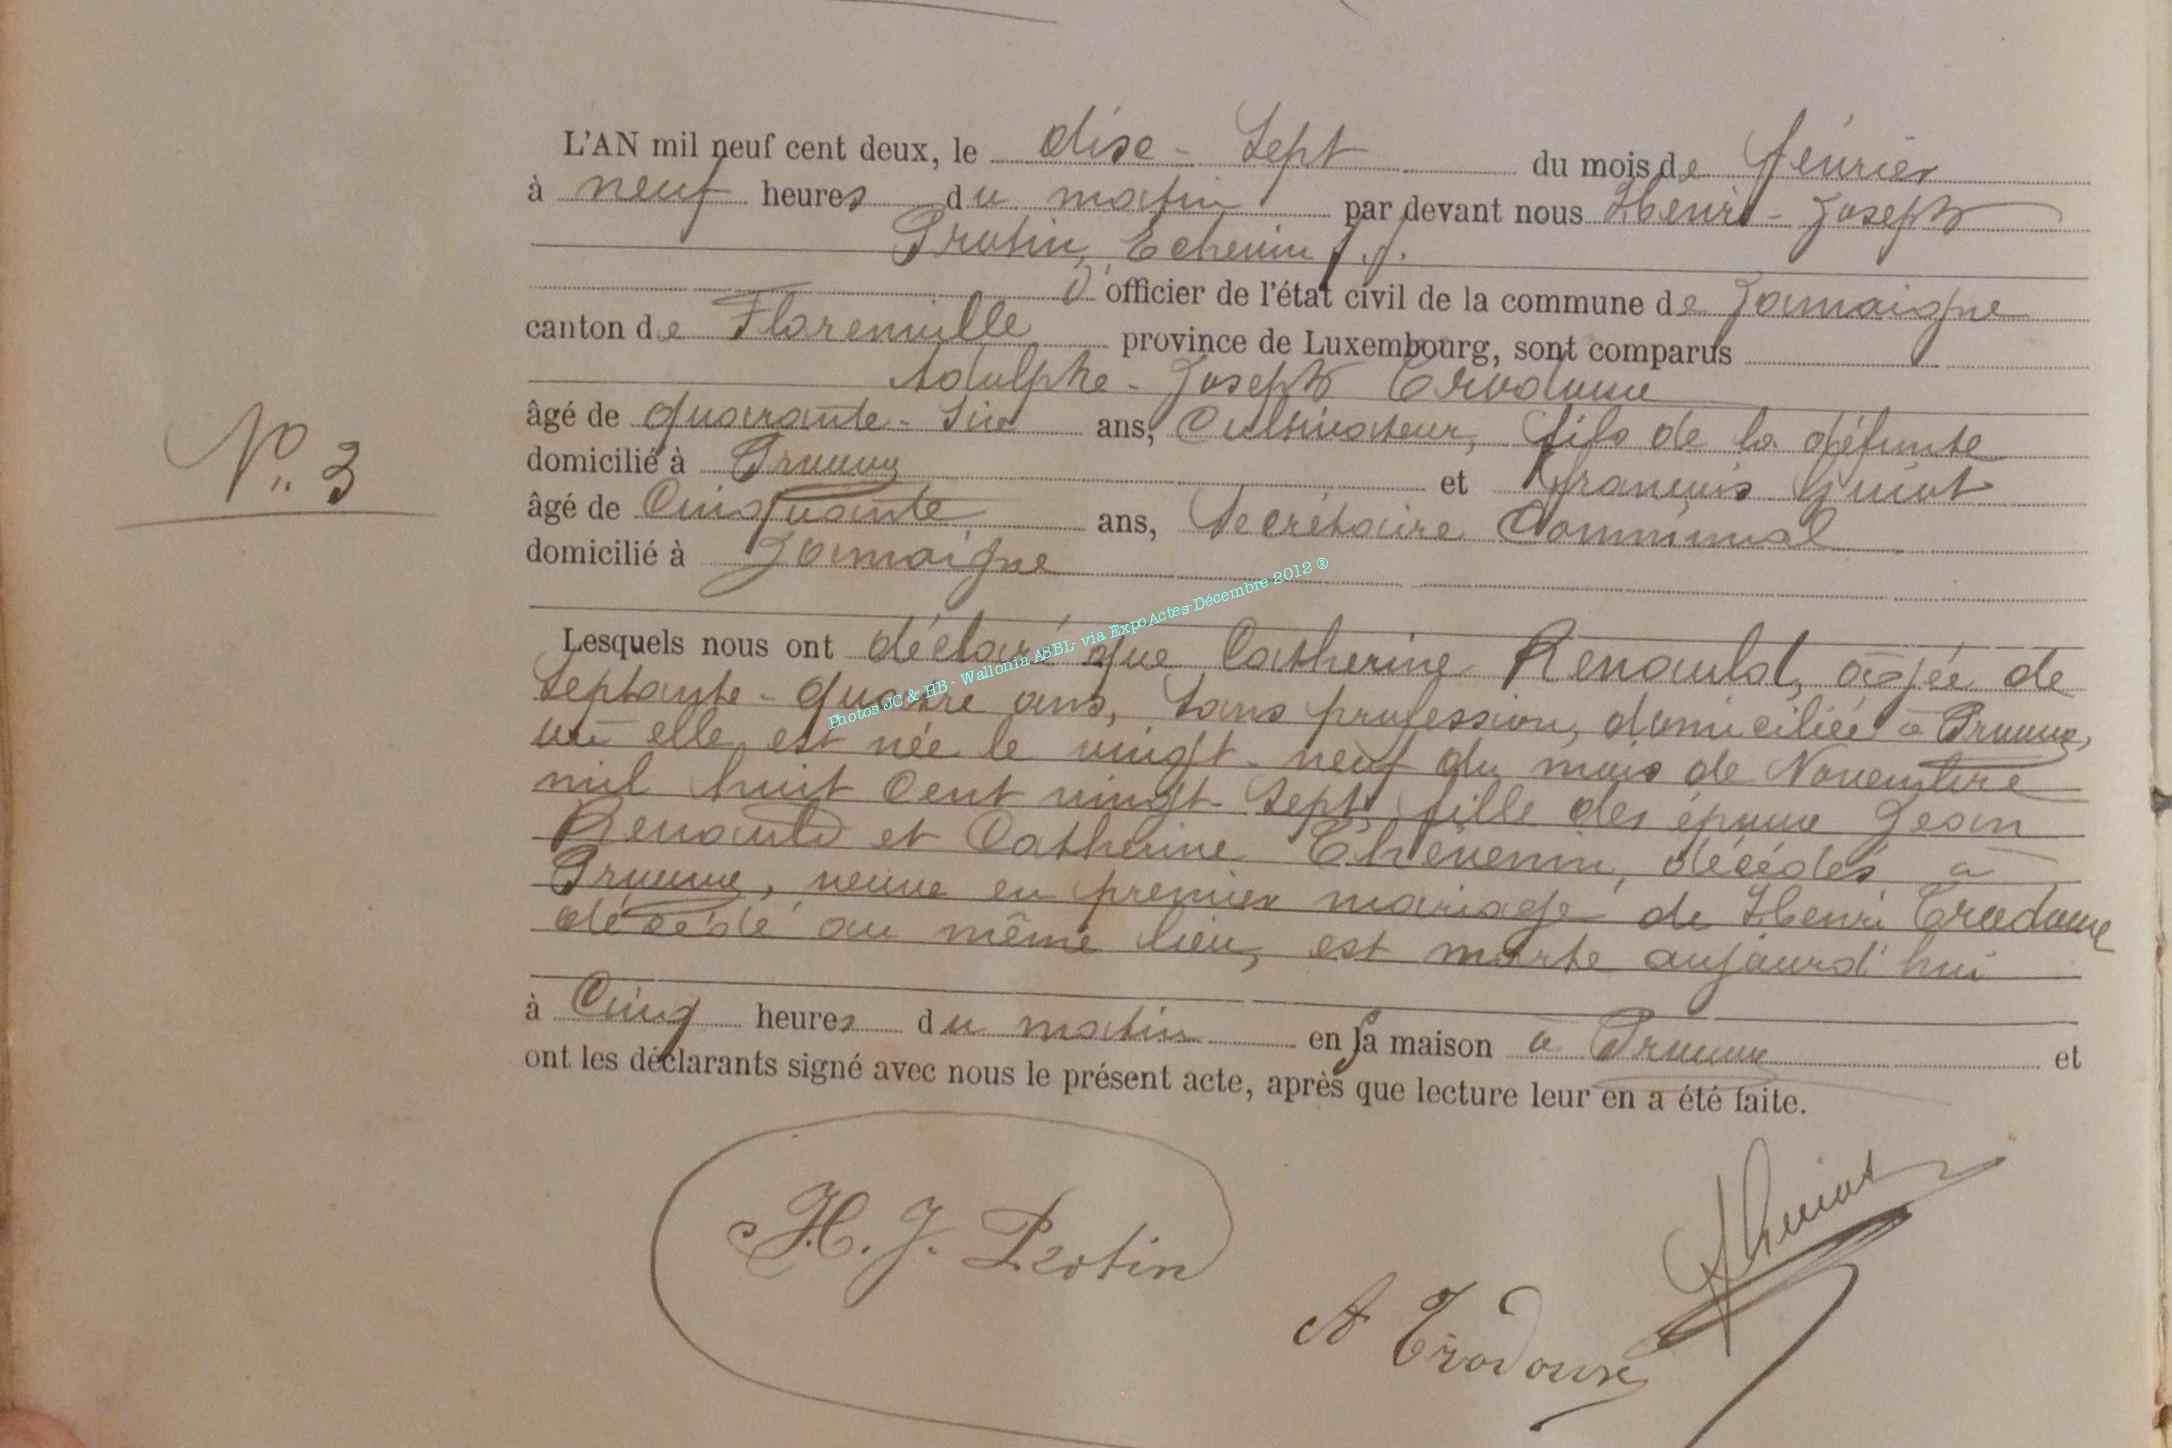 L'AN mil neuf cent deux, le dise - Sept du mois de février
à neuf heures du matin par devant nous Henri - Joseph
Protin, Echevin f.f.
d' officier de l'état civil de la commune de Jamoigne
canton de Florenville province de Luxembourg, sont comparus
Adolphe - Joseph Trodoux
âgé de quarante - six ans, Cultivateur, fils de la défunte
domicilié à Prouvy et François Guiot
âgé de Cinquante ans, Secrétaire Communal
domicilié à Jamoigne
N° 3
Lesquels nous ont déclaré que Catherine Renauld, agée de
Septante - quatre ans, Sans profession, domiciliée à Prouvy,
où elle est née le vingt - neuf du mois de Novembre
mil huit Cent vingt - Sept, fille des époux Jean
Renauld et Catherine Thévenin, décédés à
Prouvy, veuve en premier mariage de Henri Trodoux
décédé au même lieu, est morte aujourd'hui
à Cinq heures du matin en sa maison à Prouvy et
ont les déclarants signé avec nous le présent acte, après que lecture leur en a été faite.
H. J. Protin
A Trodoux
Photos JC & HB - Wallonia ASBL- via ExpoActes-Décembre 2012 ®